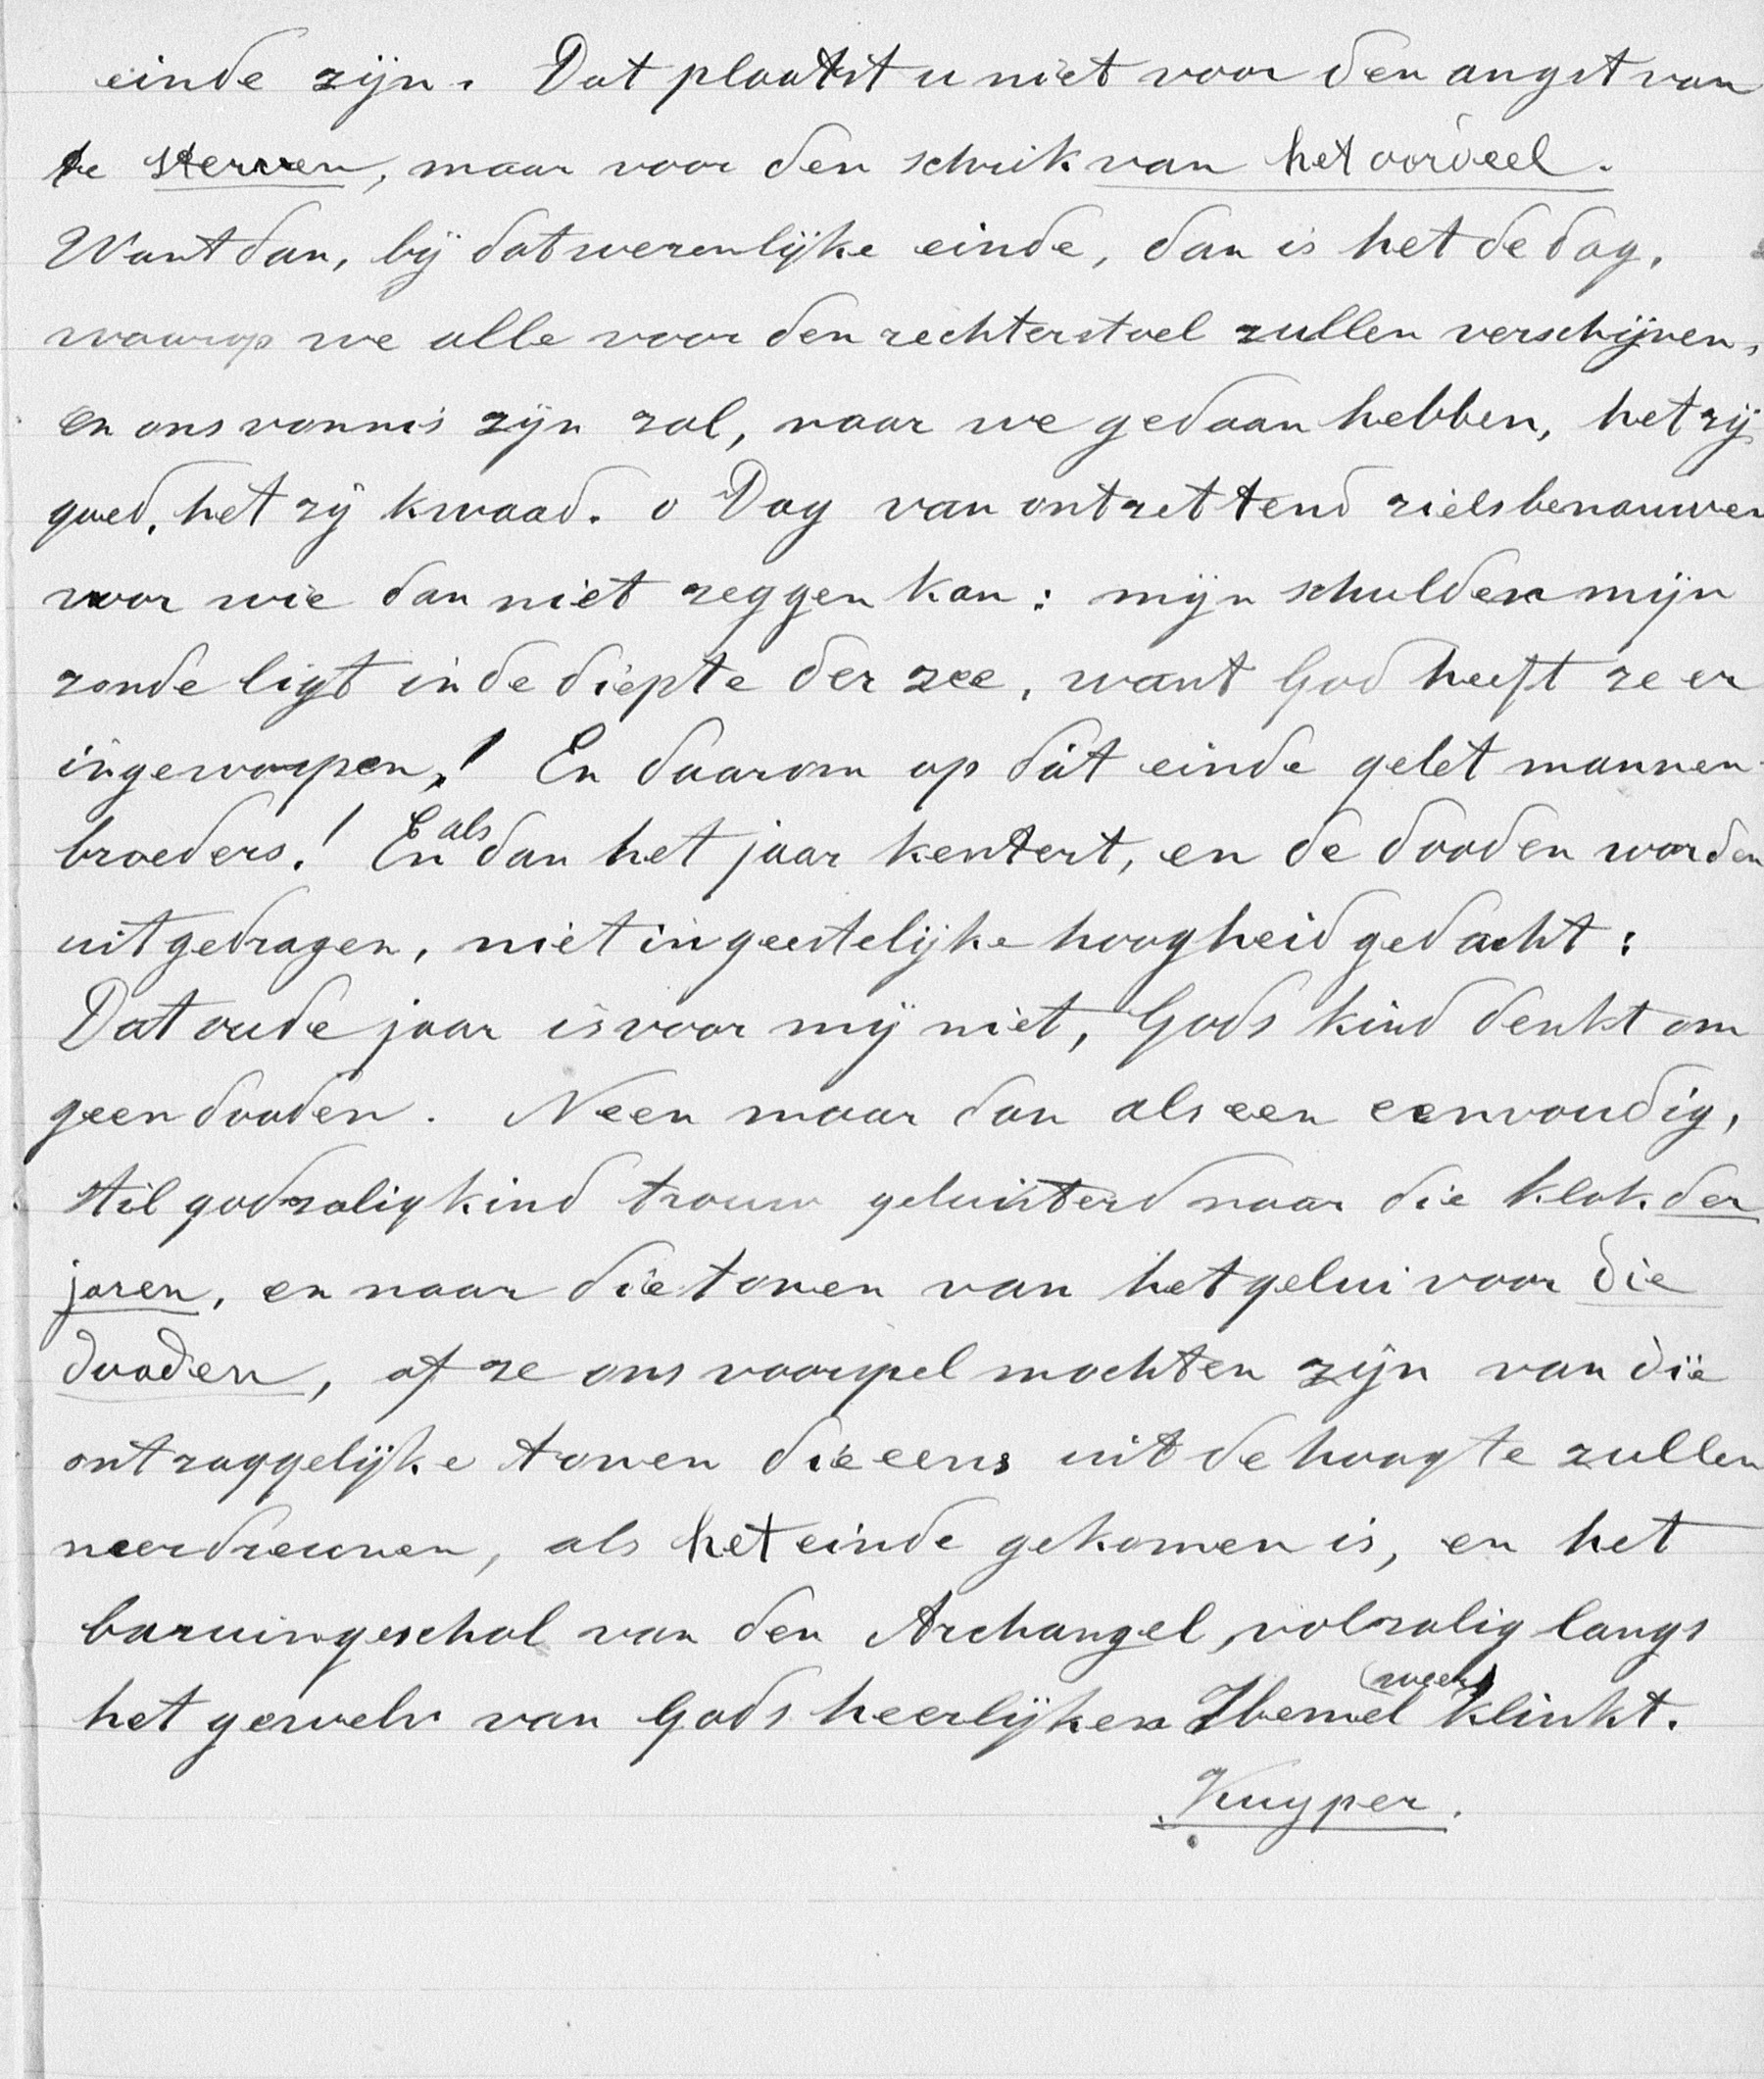 einde zijn. Dat plaatst u niet voor den angst van
te sterven, maar voor den schrik van het oordeel.
Want dan, bij dat wezenlijke einde, dan is het de dag,
waarop we alle voor den rechterstoel zullen verschijnen,
en ons vonnis zijn zal, naar we gedaan hebben, het zij
goed, het zij kwaad. o Dag van ontzettend zielsbenauwen
voor wie dan niet zeggen kan: mijn schuld en mijn
zonde ligt in de diepte der zee, want God heeft ze er
ingeworpen! En daarom op dát einde gelet mannen
broeders! En als dan het jaar kentert, en de dooden worden
uitgedragen, niet in geestelijke hoogheid gedacht:
Dat oude jaar is voor mij niet, Gods kind denkt om
geen dooden. Neen maar dan als een eenvoudig,
stil godzalig kind trouw geluisterd naar die klok der
jaren, en naar die tonen van het gelui voor die
dooden, of ze ons voorspel mochten zijn van die
ontzaggelijke tonen die eens uit de hoogte zullen
neerdreunen, als het einde gekomen is, en het
bazuingeschal van den Archangel, volzalig langs
het gewelv van Gods heerlijken Hemel (weer) klinkt.
Kuyper.